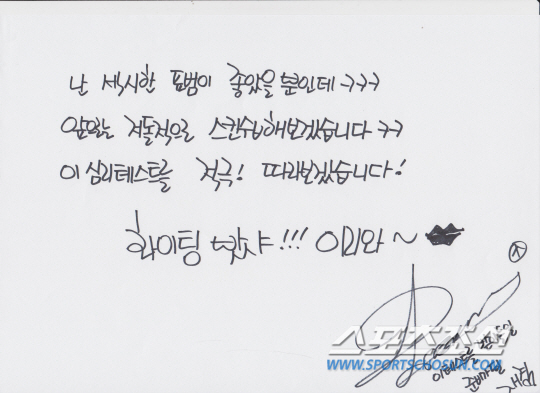 난 섹시한 표범이 좋았을 뿐인데 ㅋㅋㅋ
앞으로는 저돌적으로 스킨쉽해보겠습니다 ㅋㅋ
이 심리테스트를 적극! 따라보겠습니다!
화이팅 빳샤!!! 이리와~
스포츠조선
WWW.SPORTSCHOSUN.COM
이테스트를